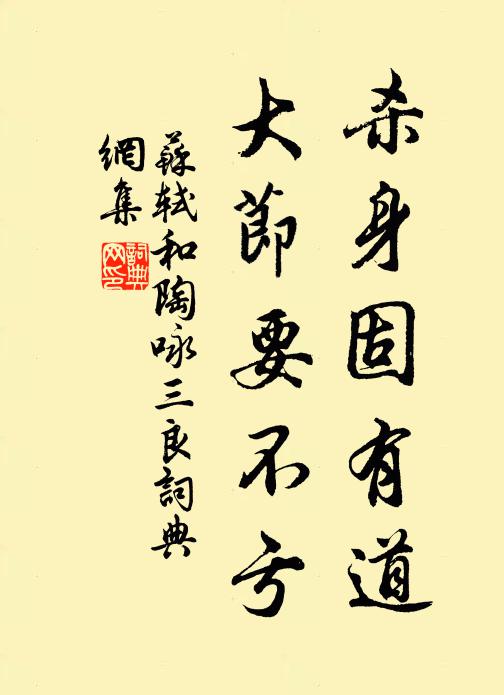 杀身固有道
大節要不亏
蘇軾和陶咏三良詞典
網集
詞典
网印